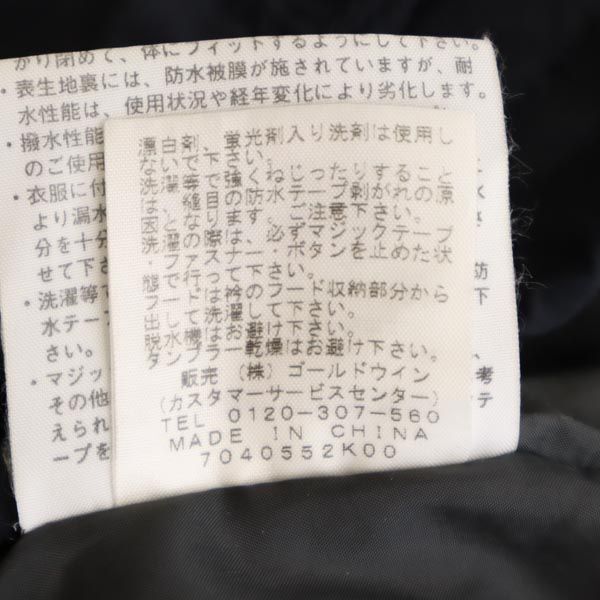 かり閉めて、体にフィットするようにして下さい。
・表生地裏には、防水被膜が施されていますが、耐
水性能は、使用状況や経年変化により劣化します。
・撥水性能
のご使用
・衣服に付
より漏水
分を十分
せて下さ
・洗濯等で
水テー
さい。
・マジッ
その他
えられ
ープを
漂白剤、蛍光剤入り洗剤は使用し
ないで下さい。
洗濯等で強くねじったりすること
は、縫目の防水テープ剥がれの原
因となります。ご注意下さい。
洗濯の際は、必ずマジックテープ
ファスナー・ボタンを止めた状
態で行って下さい。
フードは衿のフード収納部分から
出して洗濯して下さい。
脱水機はお避け下さい。
タンブラー乾燥はお避け下さい。
販売 (株) ゴールドウイン
(カスタマーサービスセンター)
TEL 0120-307-560
MADE IN CHINA
7040552K00
防
下
考
テ